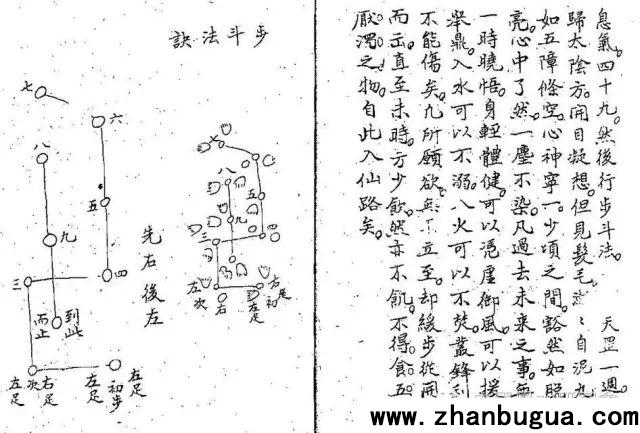 息氣四十九。然後行步斗法。 天罡一週。
歸太陰方。開目凝想。但見髮毛 自泥九
如五障條空。心神寧一。少頃之間。豁然如脫
亮。心中了然。一塵不染。凡過去未來之事。無
一時曉悟。身輕體健。可以憑虛御風。可以援
舉鼎。入水可以不溺。入火可以不焚。叢鋒利
不能傷矣。凡所願欲。無 立至。却緩步從開
而出。直至未時。方少飲。然亦不飢。不得食五
厭濁之物。自此入仙路矣。
步斗法訣
七
八
五
九
三
四
左次
右
左足
右足初
先右後左
七
六
八
五
九
三
四
到此
而止
左足
初步
左足
右足
次
左足
www.zhanbugua.com